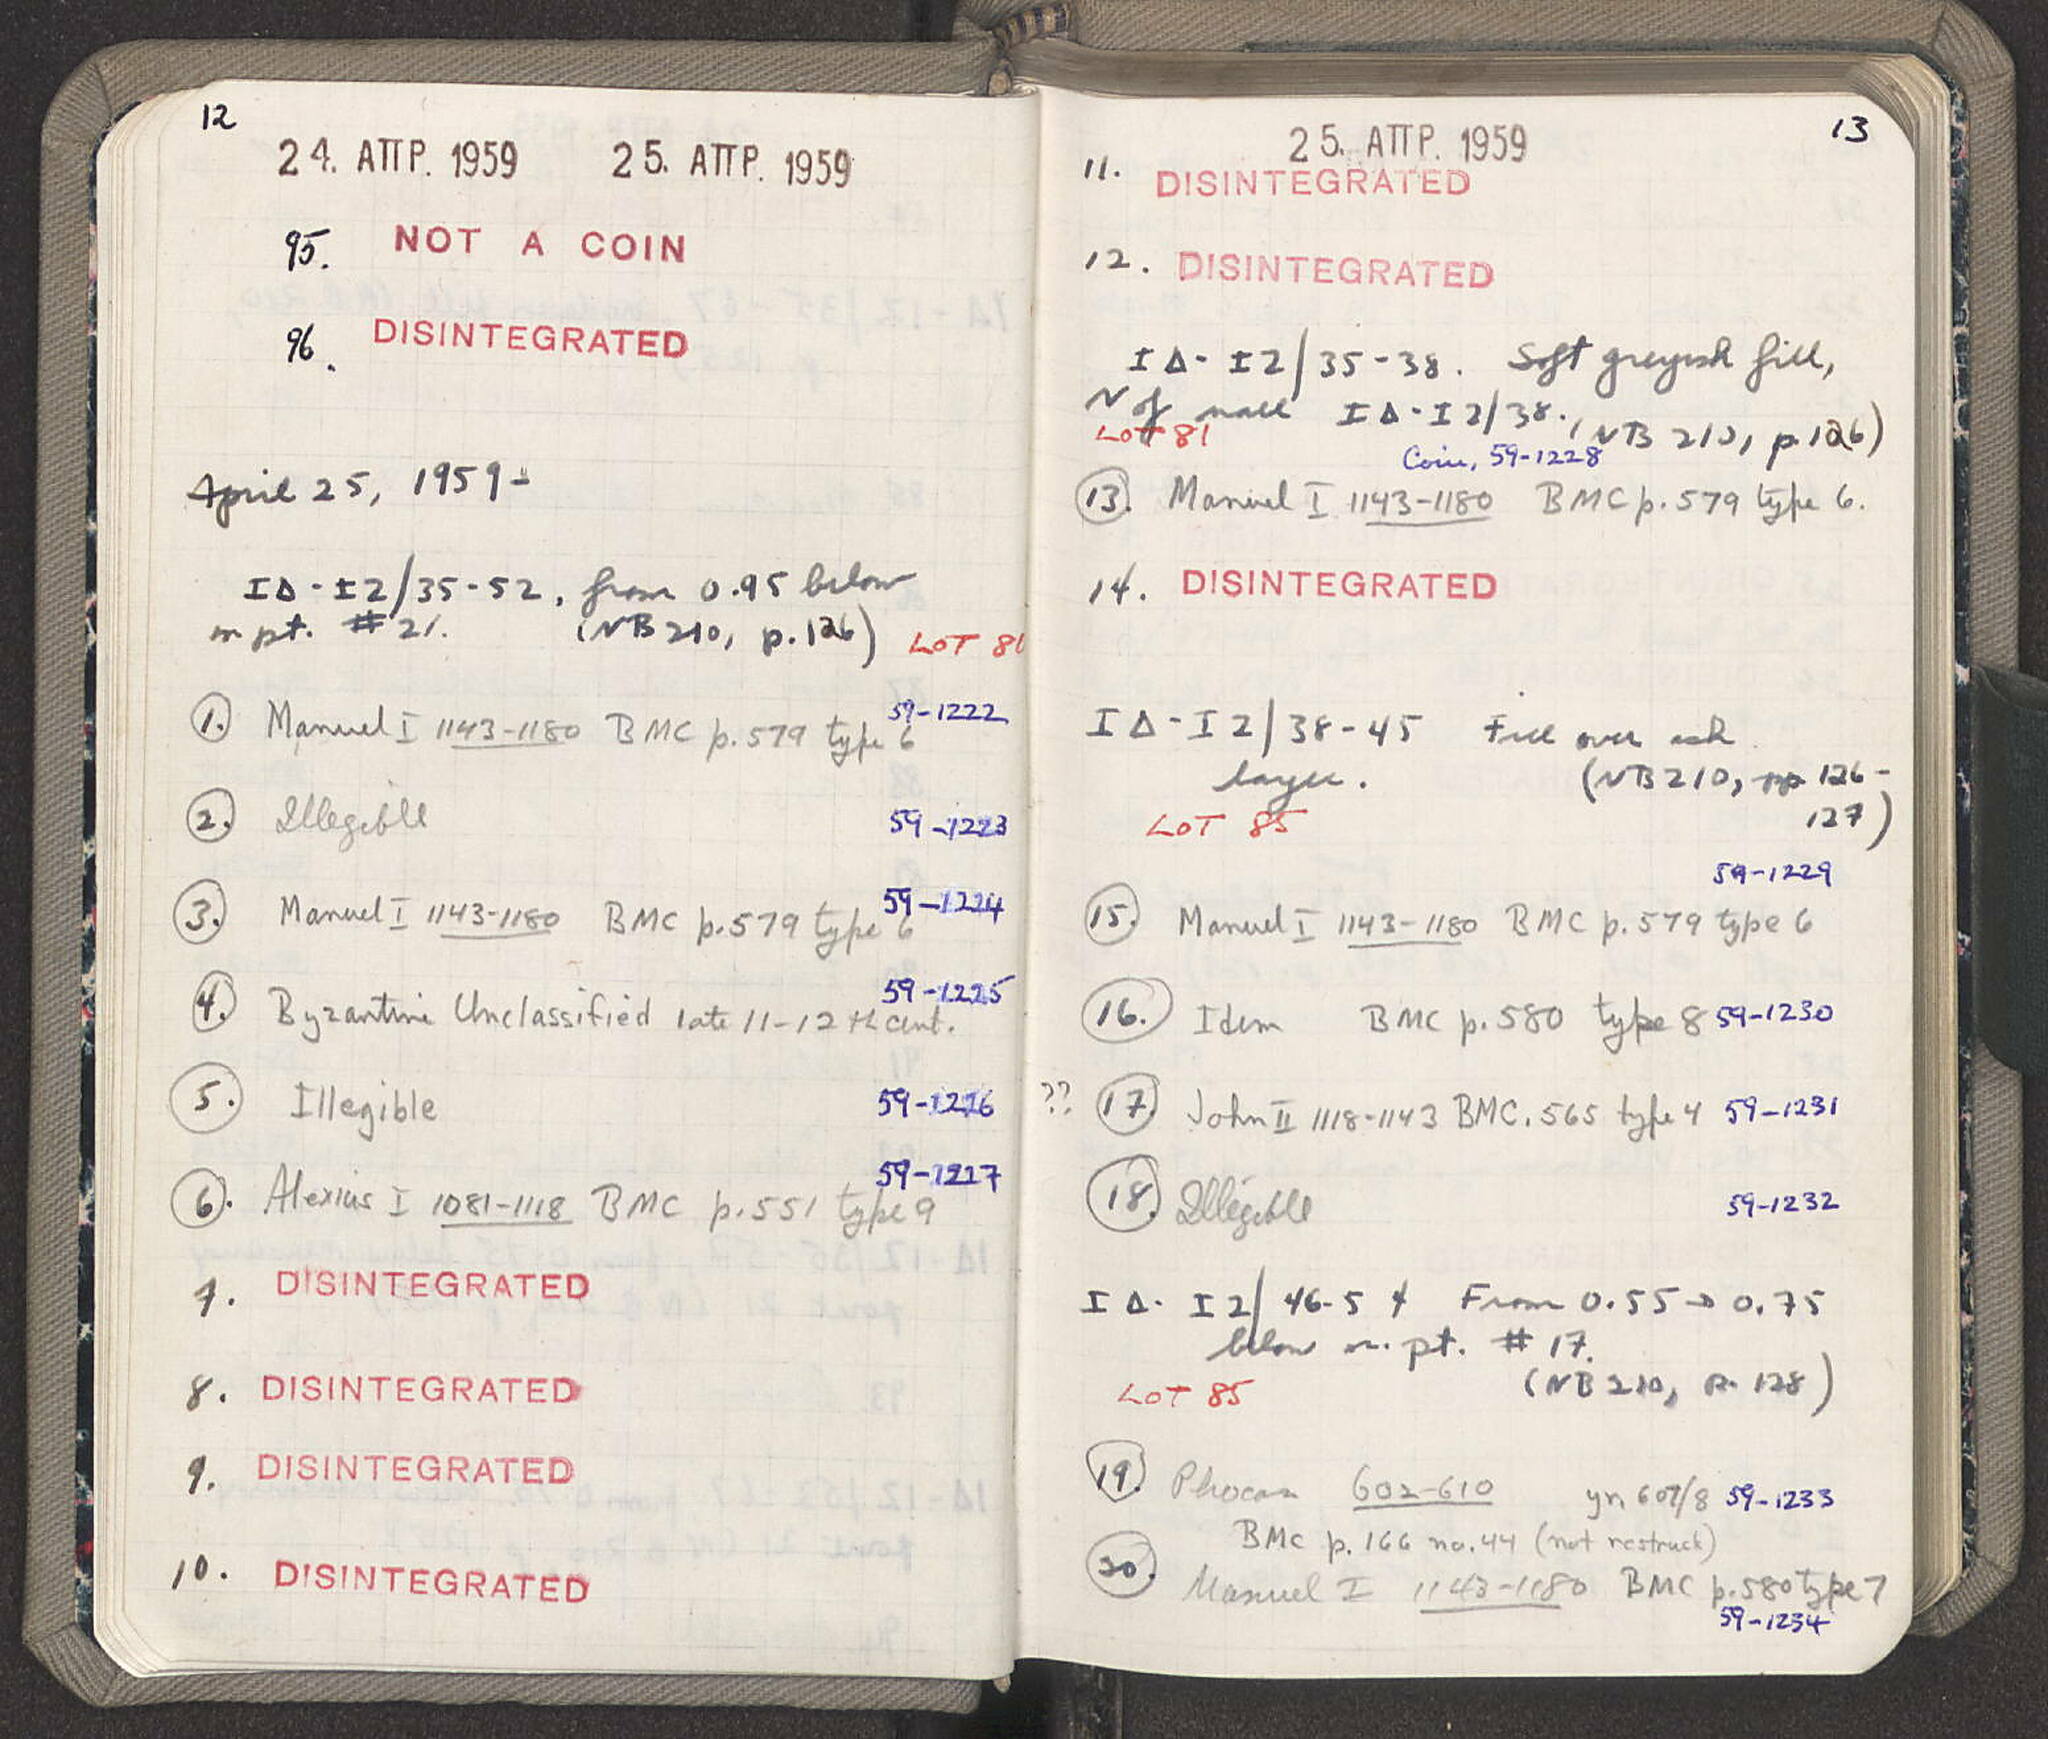 12
24. ΑΠΡ. 1959 25. ΑΠΡ. 1959
95. NOT A COIN
96. DISINTEGRATED
April 25, 1959-
ΙΔ-ΙΖ/35-52, from 0.95 below
m pt. #21. (NB 210, p.126) LOT 81
1. Manuel I 1143-1180 BMC p.579 type 6 59-1222
2. Illegible 59-1223
3. Manuel I 1143-1180 BMC p.579 type 6 59-1224
4. Byzantine Unclassified late 11-12th cent. 59-1225
5. Illegible 59-1226
6. Alexius I 1081-1118 BMC p.551 type 9 59-1227
7. DISINTEGRATED
8. DISINTEGRATED
9. DISINTEGRATED
10. DISINTEGRATED
13
25. ΑΠΡ. 1959
11. DISINTEGRATED
12. DISINTEGRATED
ΙΔ-ΙΖ/35-38. Soft greyish fill,
N of wall ΙΔ-ΙΖ/38. (NB 210, p.126)
LOT 81
Coin, 59-1228
13. Manuel I 1143-1180 BMC p.579 type 6.
14. DISINTEGRATED
ΙΔ-ΙΖ/38-45 Fill over ash
layer. (NB 210, pp 126-
127)
LOT 85
59-1229
15. Manuel I 1143-1180 BMC p.579 type 6
16. Idem BMC p.580 type 8 59-1230
?? 17. John II 1118-1143 BMC.565 type 4 59-1231
18. Illegible 59-1232
ΙΔ-ΙΖ/46-54 From 0.55→0.75
below m. pt. #17.
(NB 210, p. 128)
LOT 85
19. Phocas 602-610 yr 607/8 59-1233
BMC p.166 no.44 (not restruck)
20. Manuel I 1143-1180 BMC p.580 type 7
59-1234